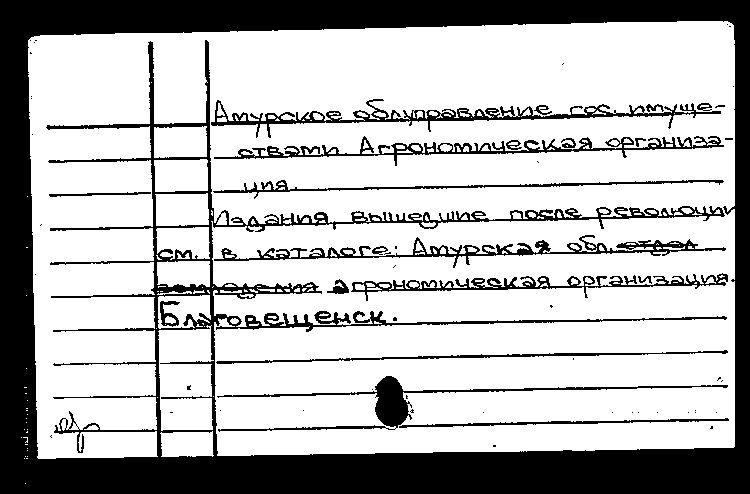 Амурское облуправление гос. имуще-
ствами Агрономическая организа-
ция.
Издания, вышедшие после революции
см. в каталоге: Амурская обл. отдел
земледелия агрономическая организация.
Благовещенск.